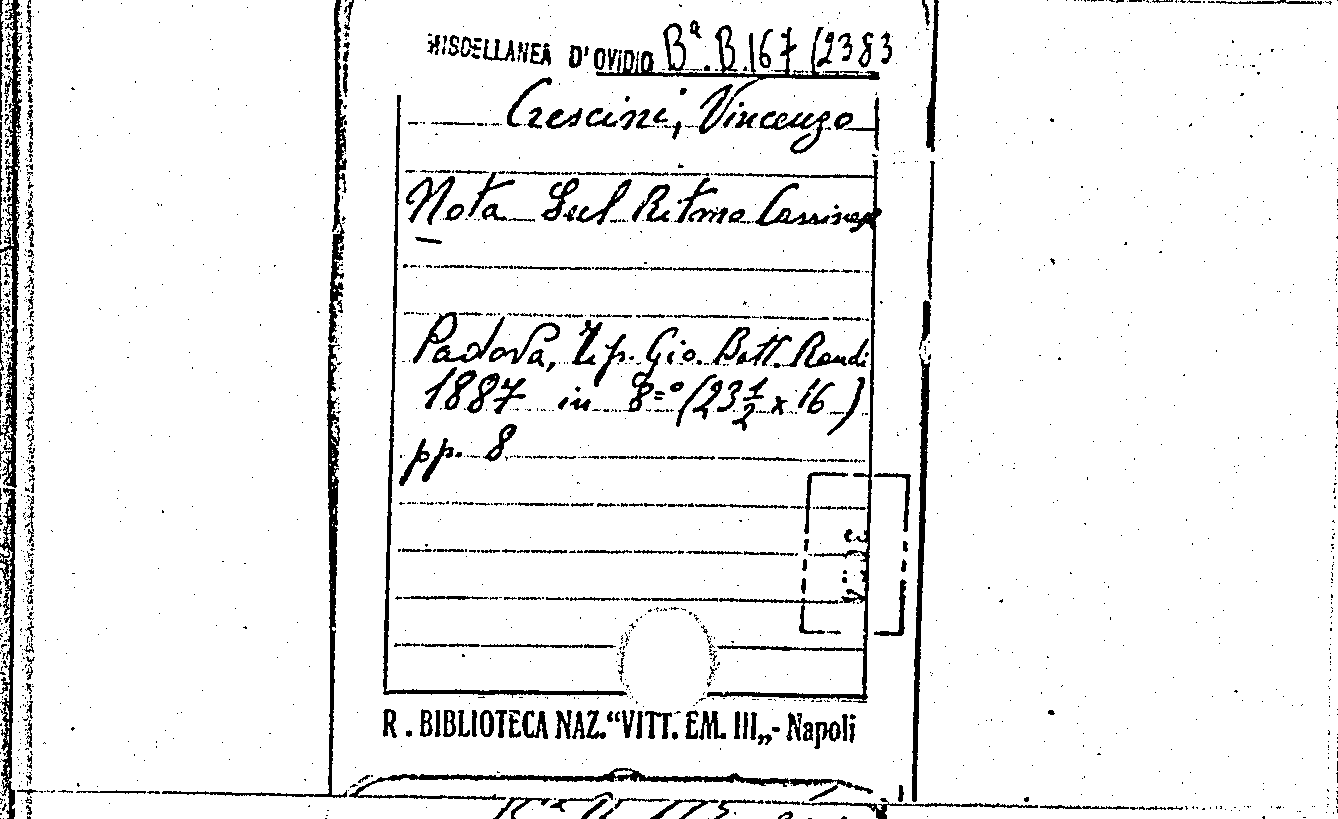 MISCELLANEA D'OVIDIO Bª. B.167 (2383
Crescini, Vincenzo
Nota sul Ritmo Cassinese
Padova, Tip. Gio. Batt. Randi
1887 in 8=° (23 1/2 x 16)
pp. 8
R. BIBLIOTECA NAZ. “VITT. EM. III„ - Napoli